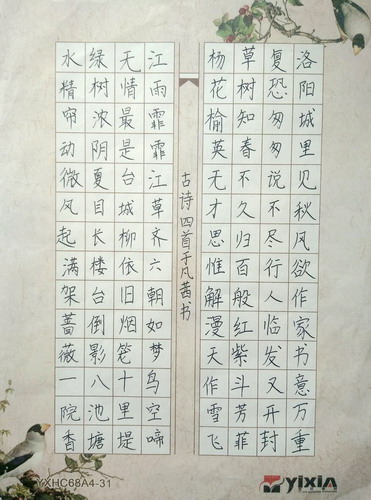 洛阳城里见秋风欲作家书意万重
复恐匆匆说不尽行人临发又开封
草树知春不久归百般红紫斗芳菲
杨花榆英无才思惟解漫天作雪飞
古诗四首于凡茜书
江雨霏霏江草齐六朝如梦鸟空啼
无情最是台城柳依旧烟笼十里堤
绿树浓阴夏目长楼台倒影八池塘
水精帘动微风起满架蔷薇一院香
YXHC68A4-31
yixin